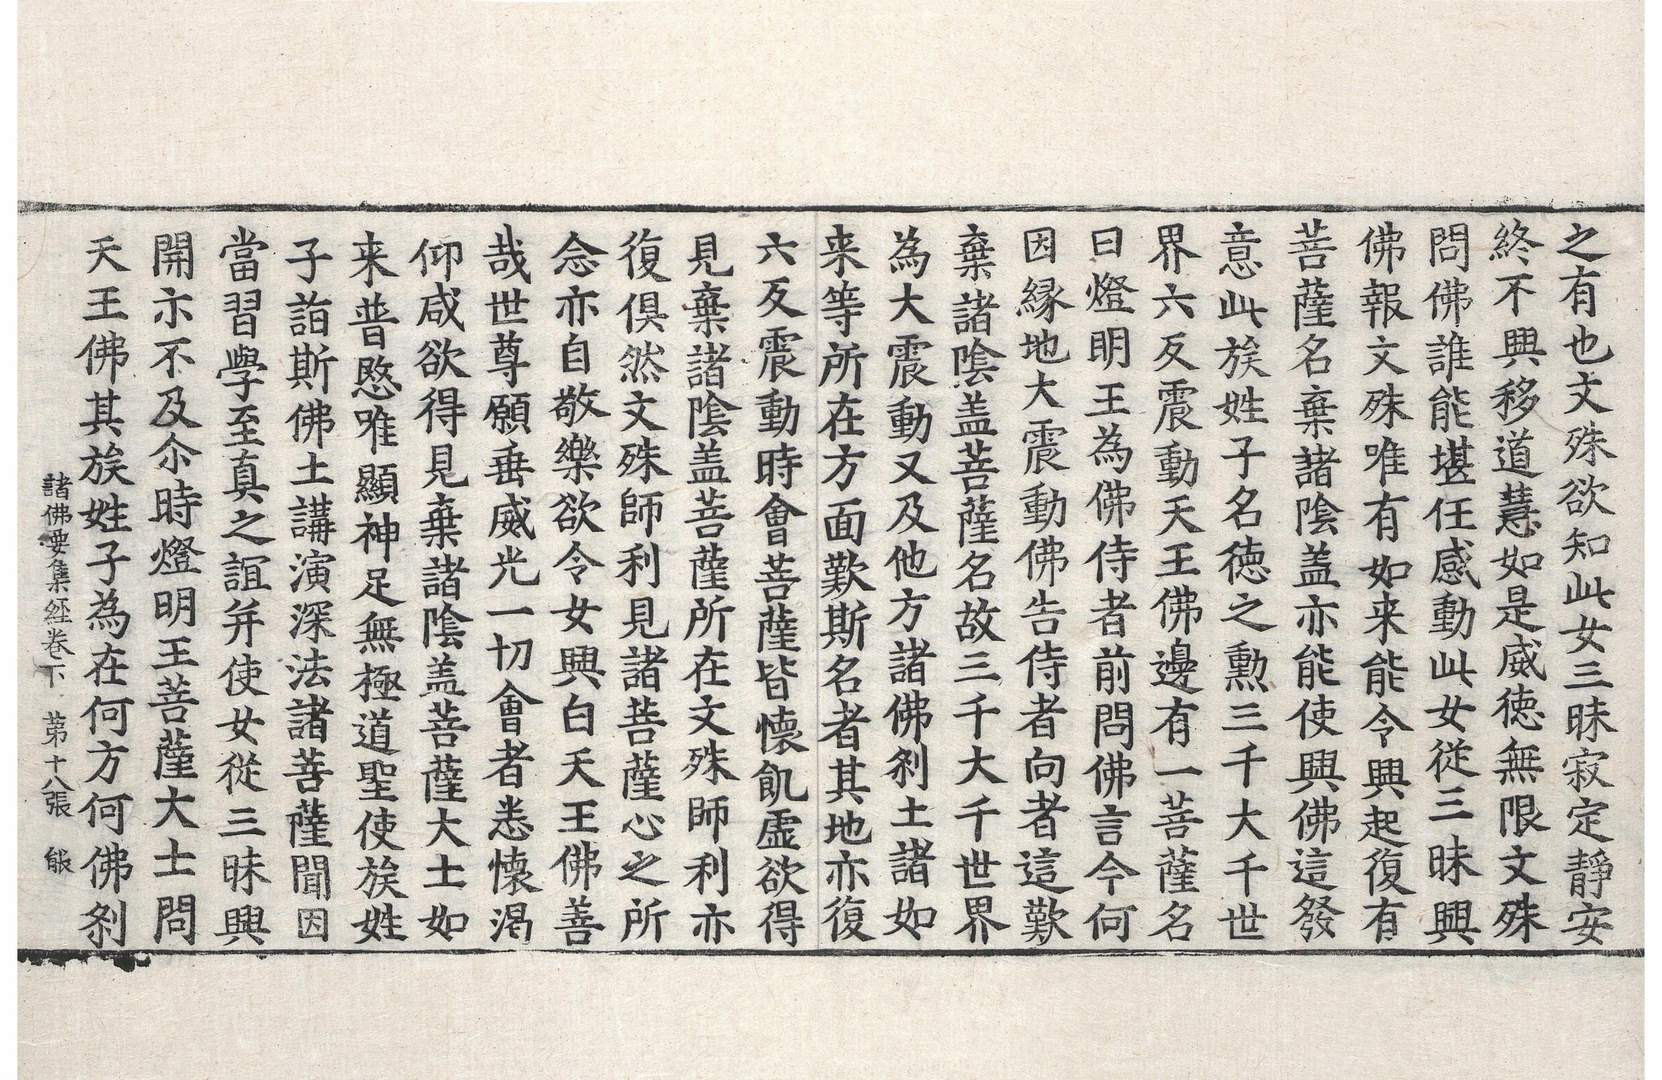 之有也文殊欲知此女三昧寂定靜安
終不興移道慧如是威徳無限文殊
問佛誰能堪任感動此女從三昧興
佛報文殊唯有如来能令興起復有
菩薩名棄諸陰盖亦能使興佛這發
意此族姓子名徳之勲三千大千世
界六反震動天王佛邊有一菩薩名
曰燈明王為佛侍者前問佛言今何
因縁地大震動佛告侍者向者這歎
棄諸陰盖菩薩名故三千大千世界
為大震動又及他方諸佛刹土諸如
来等所在方面歎斯名者其地亦復
六反震動時會菩薩皆懷飢虛欲得
見棄諸陰盖菩薩所在文殊師利亦
復俱然文殊師利見諸菩薩心之所
念亦自敬樂欲令女興白天王佛善
哉世尊願垂威光一切會者悉懷渴
仰咸欲得見棄諸陰盖菩薩大士如
来普愍唯顯神足無極道聖使族姓
子詣斯佛土講演深法諸菩薩聞因
當習學至真之誼并使女從三昧興
開示不及尒時燈明王菩薩大士問
天王佛其族姓子為在何方何佛刹
諸佛要集経卷下　第十八張　能